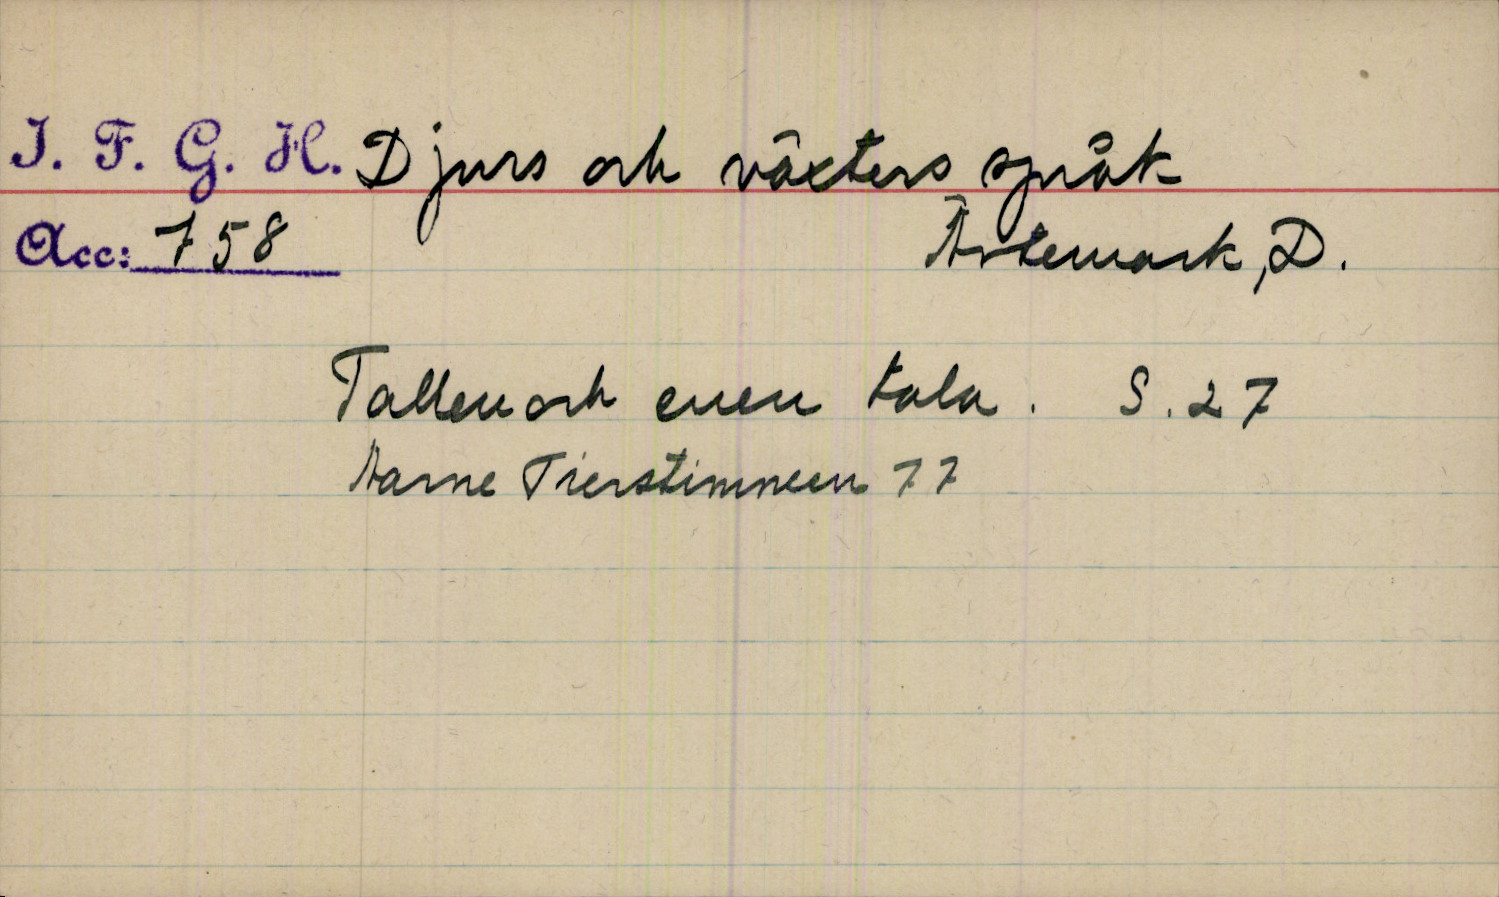 I. F. G. H. Djurs och växters språk
Acc: 758 Ärtemark, D.
Tallen och enen tala. S. 27
Aarne Tierstimmen 77